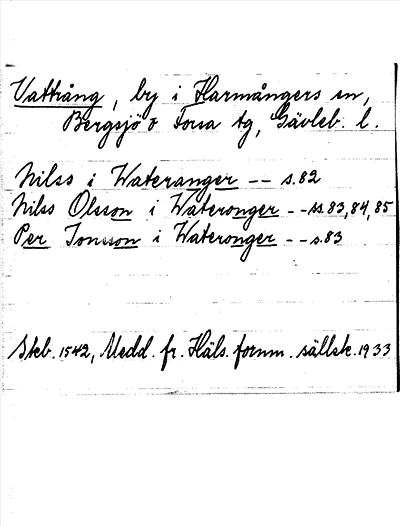 Vattrång, by i Harmångers sn,
Bergsjö o Forsa tg, Gävleb. l.
Nilss i Wateranger -- s.82
Nilss Olsson i Wateronger -- ss.83,84,85
Per Jonsson i Wateronger -- s.83
Skb. 1542, Medd. fr. Häls. fornm. sällsk. 1933